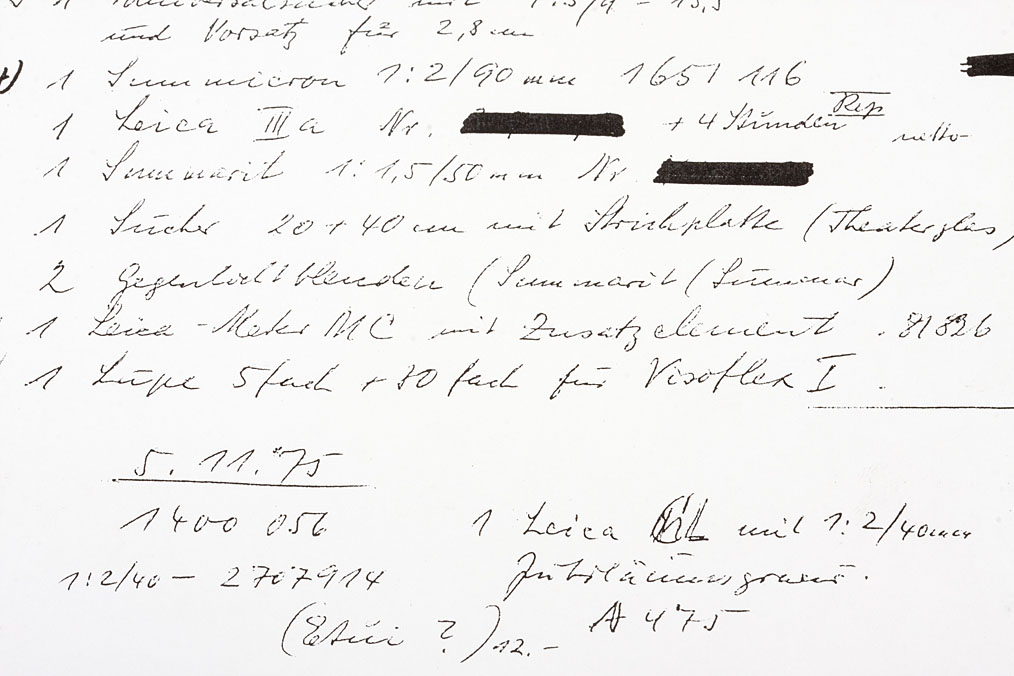 1 Universalsucher mit 1:
und Vorsatz für 2,8 cm
1 Summicron 1:2/90 mm 1651 116
Rep
1 Leica IIIa Nr. + 4 Stunden netto
1 Summarit 1:1,5/50 mm Nr
1 Sucher 20 + 40 cm mit Strichplatte (Theaterglas)
2 Gegenlichtblenden (Summarit (Summar)
1 Leica-Meter MC mit Zusatzelement
1 Lupe 5fach + 30 fach für Visoflex I
5.11.75
1400 056 1 Leica CL mit 1:2/40mm
1:2/40 – 2707914 Jubiläumsgravur.
(Etui ?) 12.– A 475